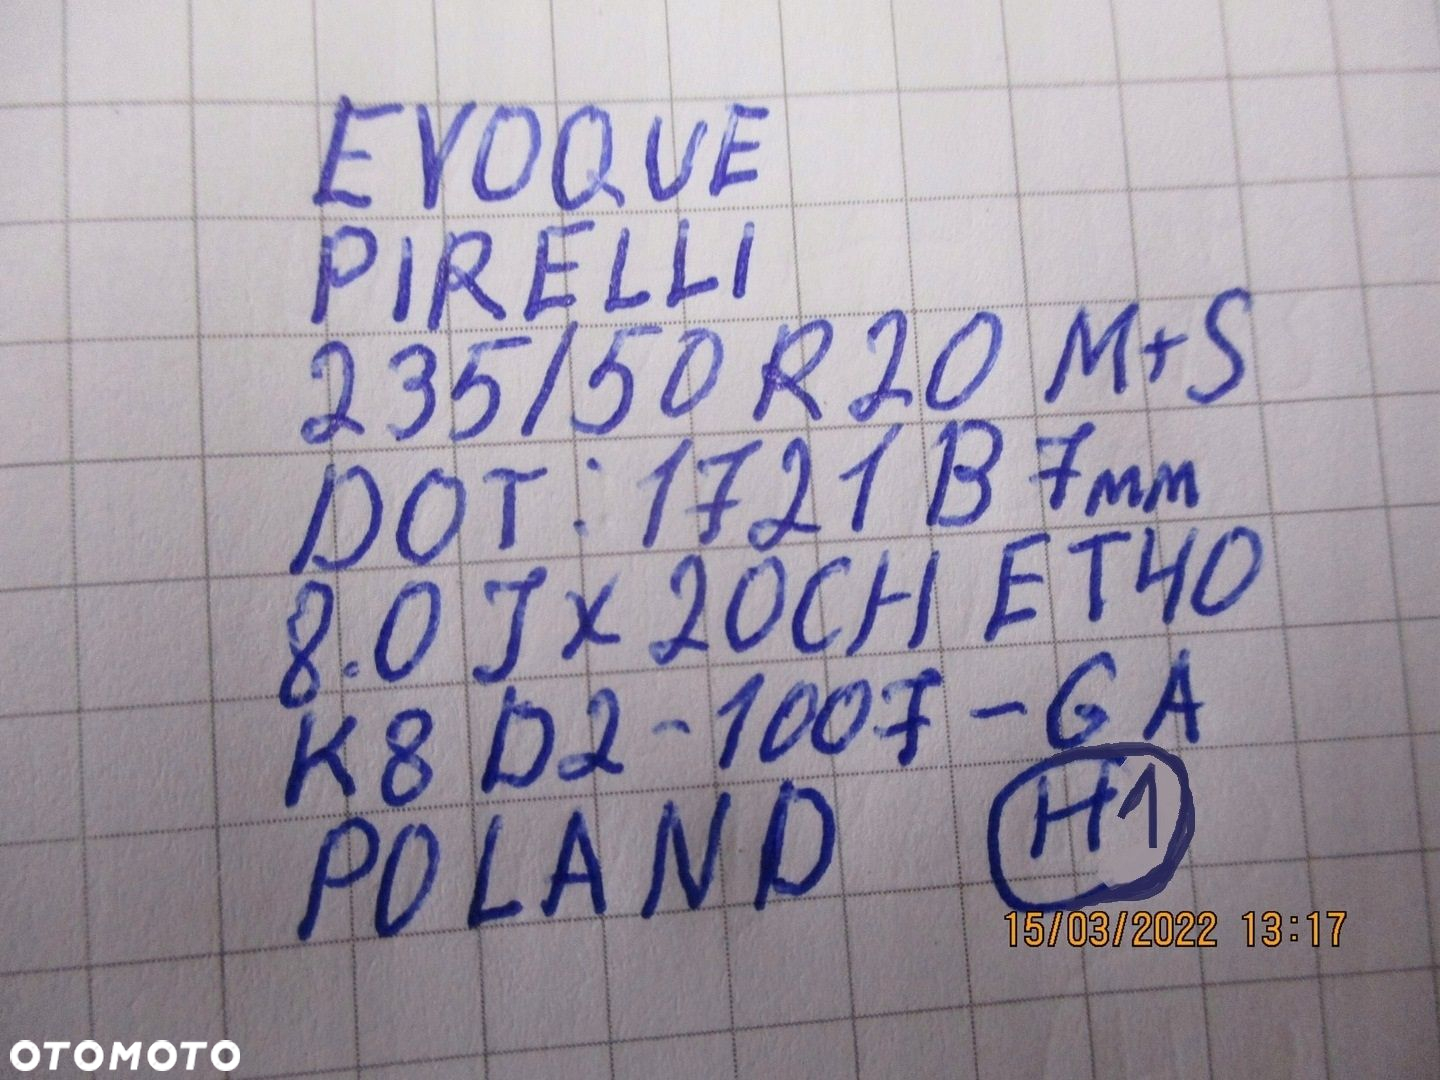 EVOQUE
PIRELLI
235/50 R20 M+S
DOT: 1721 B 7mm
8.0 J x 20CH ET40
K8 D2-1007-GA
POLAND H1
15/03/2022 13:17
OTOMOTO